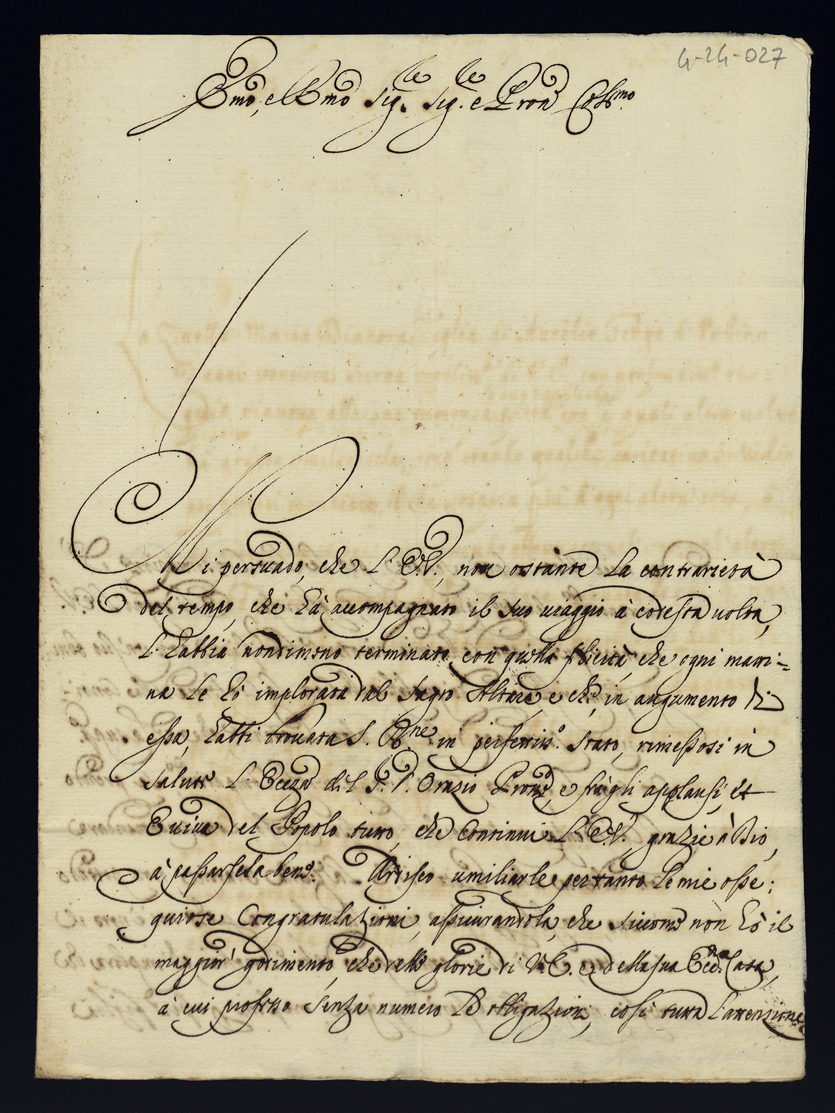 4-24-027
Emo, e Rmo Sig.le Sig.le e Pron Colmo
Mi persuado, che l'E.V., non ostante la contrarietà
del tempo, che hà accompagnato il suo viaggio à codesta volta,
l'habbia nondimeno terminato con quella felicità che ogni matti=
na le hò implorata dal Sagro Altare, e che in augumento di
essa, habbi trovata S. in perfettiss.o stato, rimessosi in
salute l'Ecceza del S. D. Orazio Prone, e frà gli applausi, et
Eviva del Popolo tutto, che continui l'E.V., grazie à Dio,
à passarsela bene. Ardisco umiliarle per tanto le mie osse:
quiose Congratulazioni, assicurandola, che siccome non hò il
maggior godimento, che delle glorie di V.E. e della sua Ecc.ma Casa,
à cui professo senza numero le obligazioni, così tutta l'attenzione